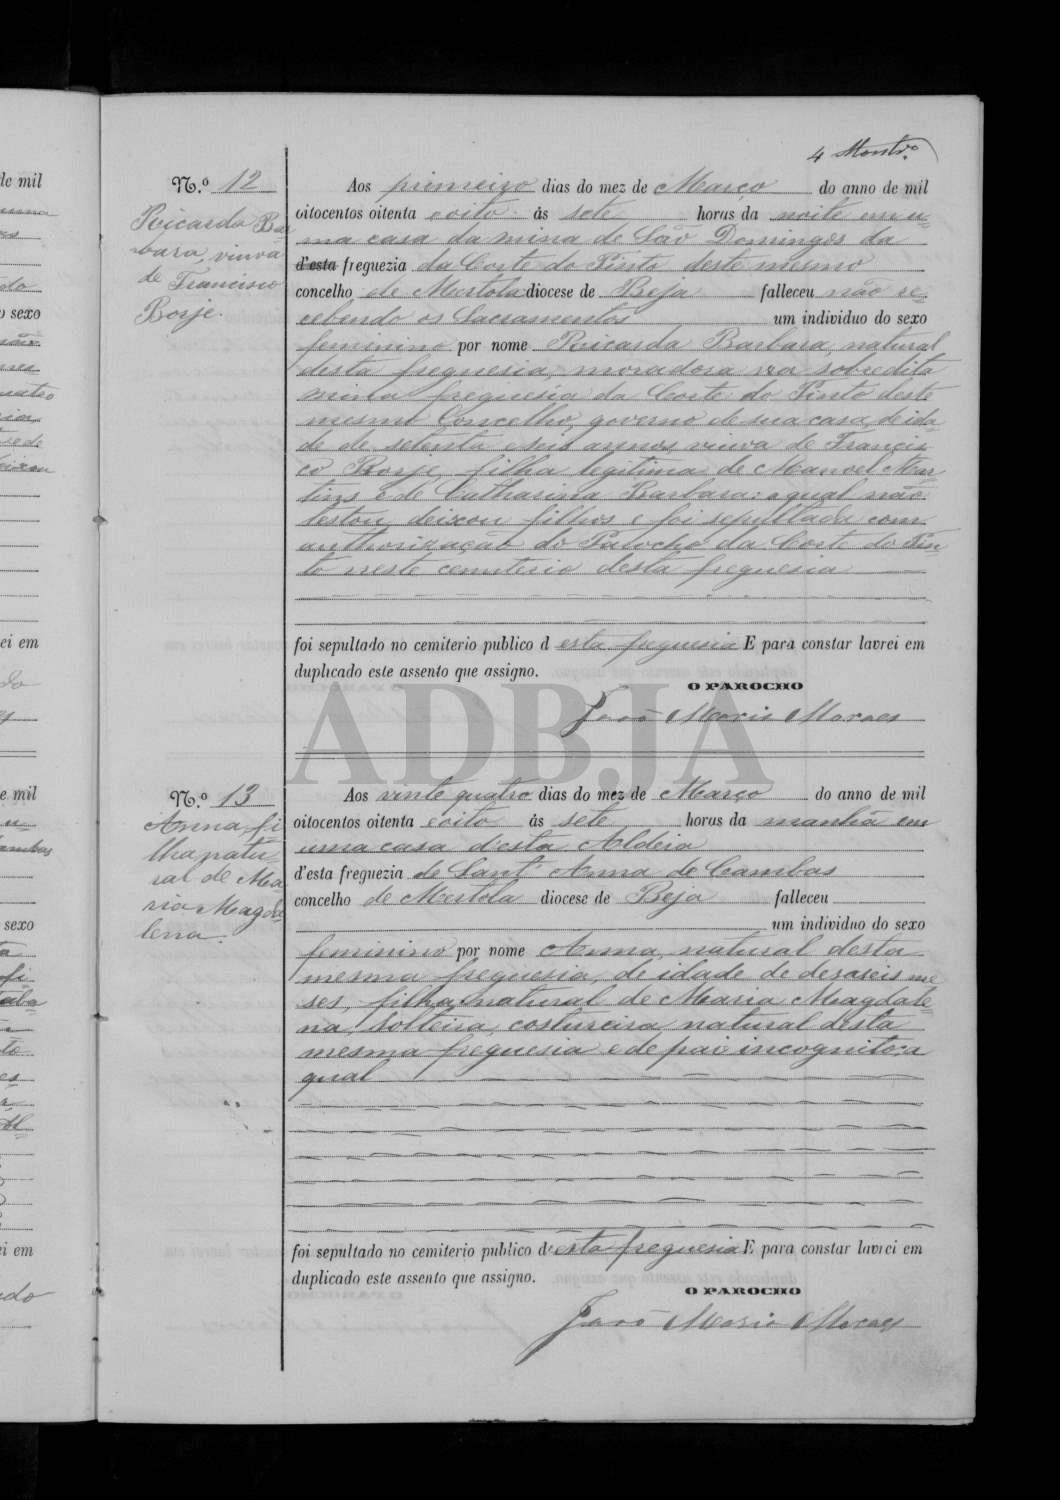 4 Montr.º
N.º 12
Ricarda Bar
bara, viuva
de Francisco
Borje.
Aos primeiro dias do mez de Março do anno de mil
oitocentos oitenta e oito ás sete horas da noite em u-
ma casa da mina de São Domingos da
d'esta freguezia da Corte do Pinto deste mesmo
concelho de Mertola diocese de Beja falleceu não re-
cebendo os Sacramentos um individuo do sexo
feminino por nome Ricarda Barbara, natural
desta freguesia, moradora na sobredita
mina freguesia da Corte do Pinto deste
mesmo Concelho, governo de sua casa, de ida
de de setenta e seis annos, viuva de Francis-
co Borje, filha legitima de Manoel Mar
tins e de Catharina Barbara: a qual não
testou deixou filhos e foi sepultada com
authorização do Parocho da Corte do Pin-
to neste cemiterio desta freguesia
foi sepultado no cemiterio publico d esta freguesia E para constar lavrei em
duplicado este assento que assigno.
O PAROCHO
João Maria Moraes
ADBJA
N.º 13
Anna, fi-
lha natu-
ral de Ma-
ria Magda-
lena.
Aos vinte quatro dias do mez de Março do anno de mil
oitocentos oitenta e oito ás sete horas da manhã em
uma casa d'esta Aldeia
d'esta freguezia de Sant' Anna de Cambas
concelho de Mertola diocese de Beja falleceu
um individuo do sexo
feminino por nome Anna, natural desta
mesma freguesia, de idade de desaseis me-
ses, filha natural de Maria Magdale-
na, solteira, costureira, natural desta
mesma freguesia e de pai incognito: a
qual
foi sepultado no cemiterio publico d'esta freguesia E para constar lavrei em
duplicado este assento que assigno.
O PAROCHO
João Maria Moraes